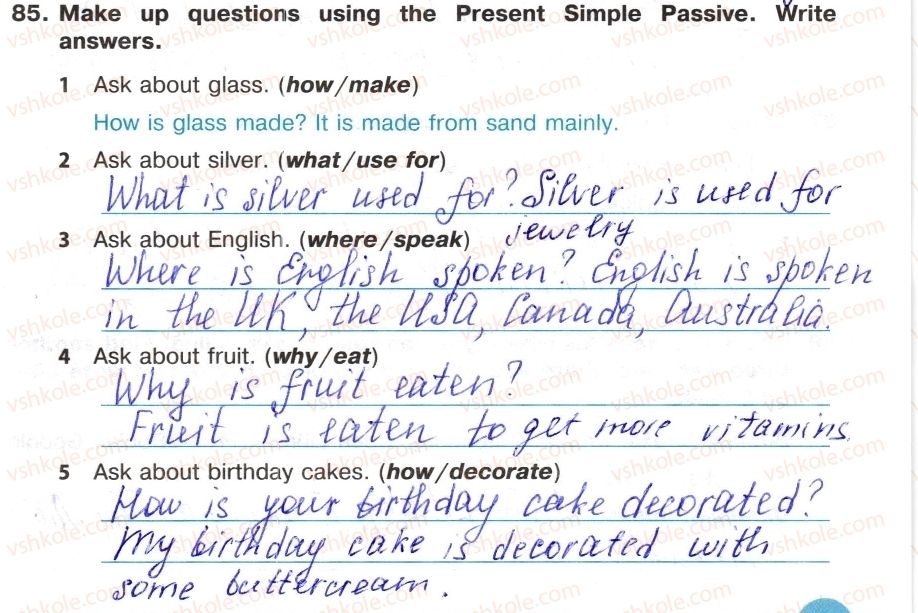 85. Make up questions using the Present Simple Passive. Write
answers.
1 Ask about glass. (how/make)
How is glass made? It is made from sand mainly.
2 Ask about silver. (what/use for)
What is silver used for? Silver is used for
jewelry
3 Ask about English. (where/speak)
Where is English spoken? English is spoken
in the UK, the USA, Canada, Australia.
4 Ask about fruit. (why/eat)
Why is fruit eaten?
Fruit is eaten to get more vitamins.
5 Ask about birthday cakes. (how/decorate)
How is your birthday cake decorated?
My birthday cake is decorated with
some buttercream.
vshkole.com